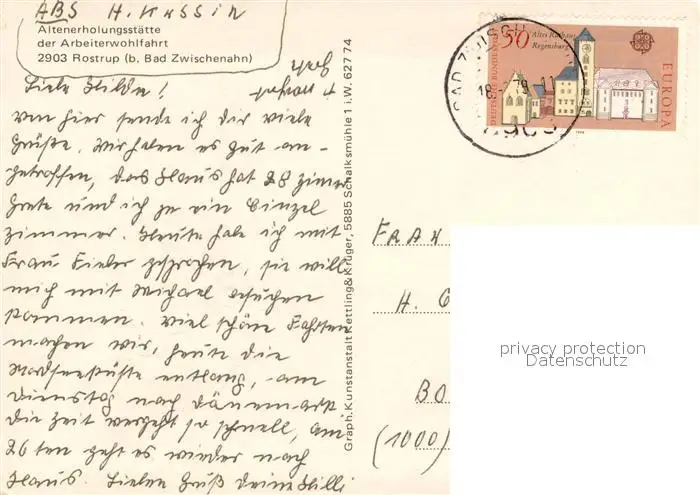 ABS H. Kassin
Altenerholungsstätte
der Arbeiterwohlfahrt
2903 Rostrup (b. Bad Zwischenahn)
Liebe Hilde!
von hier sende ich dir viele
Grüße. Wir haben es gut an-
getroffen, das Haus hat 28 zimmer
Grete und ich je ein Einzel
zimmer. Heute habe ich mit
Frau gesprochen, sie will
mich mit Michael besuchen
kommen. viel schöne Fahrten
machen wir, heute die
Nordseeküste entlang, am
Dienstag nach Dänemark
die zeit vergeht so schnell, am
26 ten geht es wieder nach
Haus. Lieben Gruß deine Hilli
Graph. Kunstanstalt Kettling & Krüger, 5885 Schalksmühle 1 i.W. 627 74
BAD ZWISCH
18.-7.79-11
2903
50
Altes Rathaus
Regensburg
DEUTSCHE BUNDESPOST
EUROPA
CEPT
1978
FRAU
H. G
BO
(1000)
privacy protection
Datenschutz